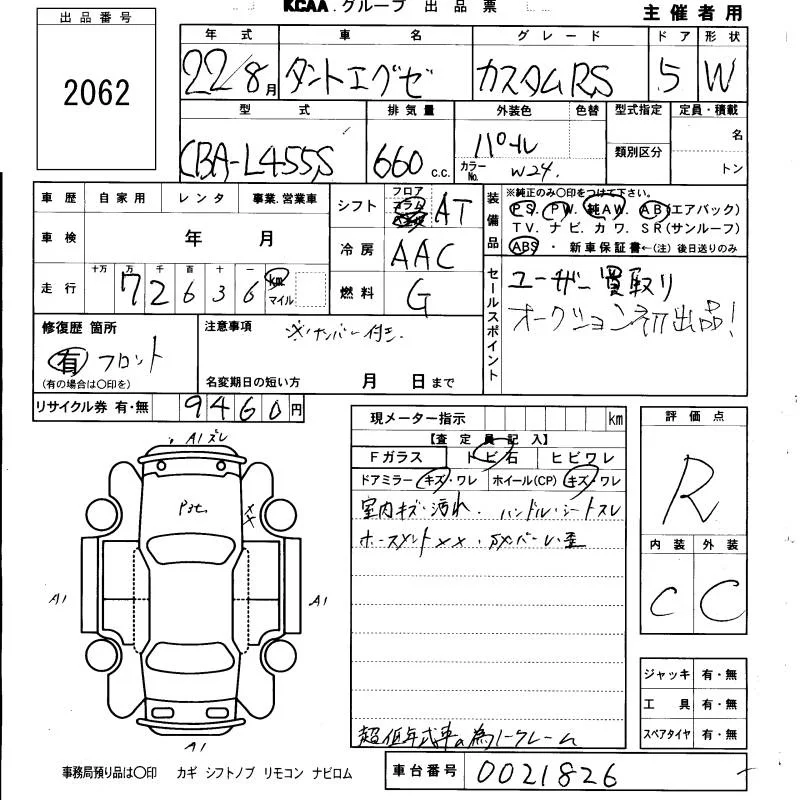 KCAA.グループ 出品票
主催者用
出品番号
2062
年式 車名 グレード ドア 形状
22/8月 タントエグゼ カスタムRS 5 W
型式 排気量 外装色 色替 型式指定 定員・積載
CBA-L455S 660 c.c. パール
カラーNo. W24. 類別区分 名
トン
車歴 自家用 レンタ 事業.営業車
車検 年 月
走行 十万 万 千 百 十 一
7 2 6 3 6 km マイル
シフト フロア コラム AT
冷房 AAC
燃料 G
装備品 ※純正のみ〇印をつけて下さい。
PS. PW. 純AW. AB(エアバック)
TV. ナビ. カワ. SR(サンルーフ)
ABS ・ 新車保証書←(注)後日送りのみ
セールスポイント
ユーザー買取り
オークション初出品!
修復歴 箇所
有 フロント
(有の場合は〇印を)
注意事項
※ナンバー付き
名変期日の短い方 月 日まで
リサイクル券 有・無 9460円
現メーター指示 km
【査定員記入】
Fガラス トビ石 ヒビワレ
ドアミラー キズ・ワレ ホイール(CP) キズ・ワレ
室内キズ・汚れ. ハンドル・シートスレ
超低年式車の為ノークレーム
評価点
R
内装 外装
C C
A1 ズレ
A1
A1
A1
ジャッキ 有・無
工具 有・無
スペアタイヤ 有・無
事務局預り品は〇印 カギ シフトノブ リモコン ナビロム
車台番号 0021826